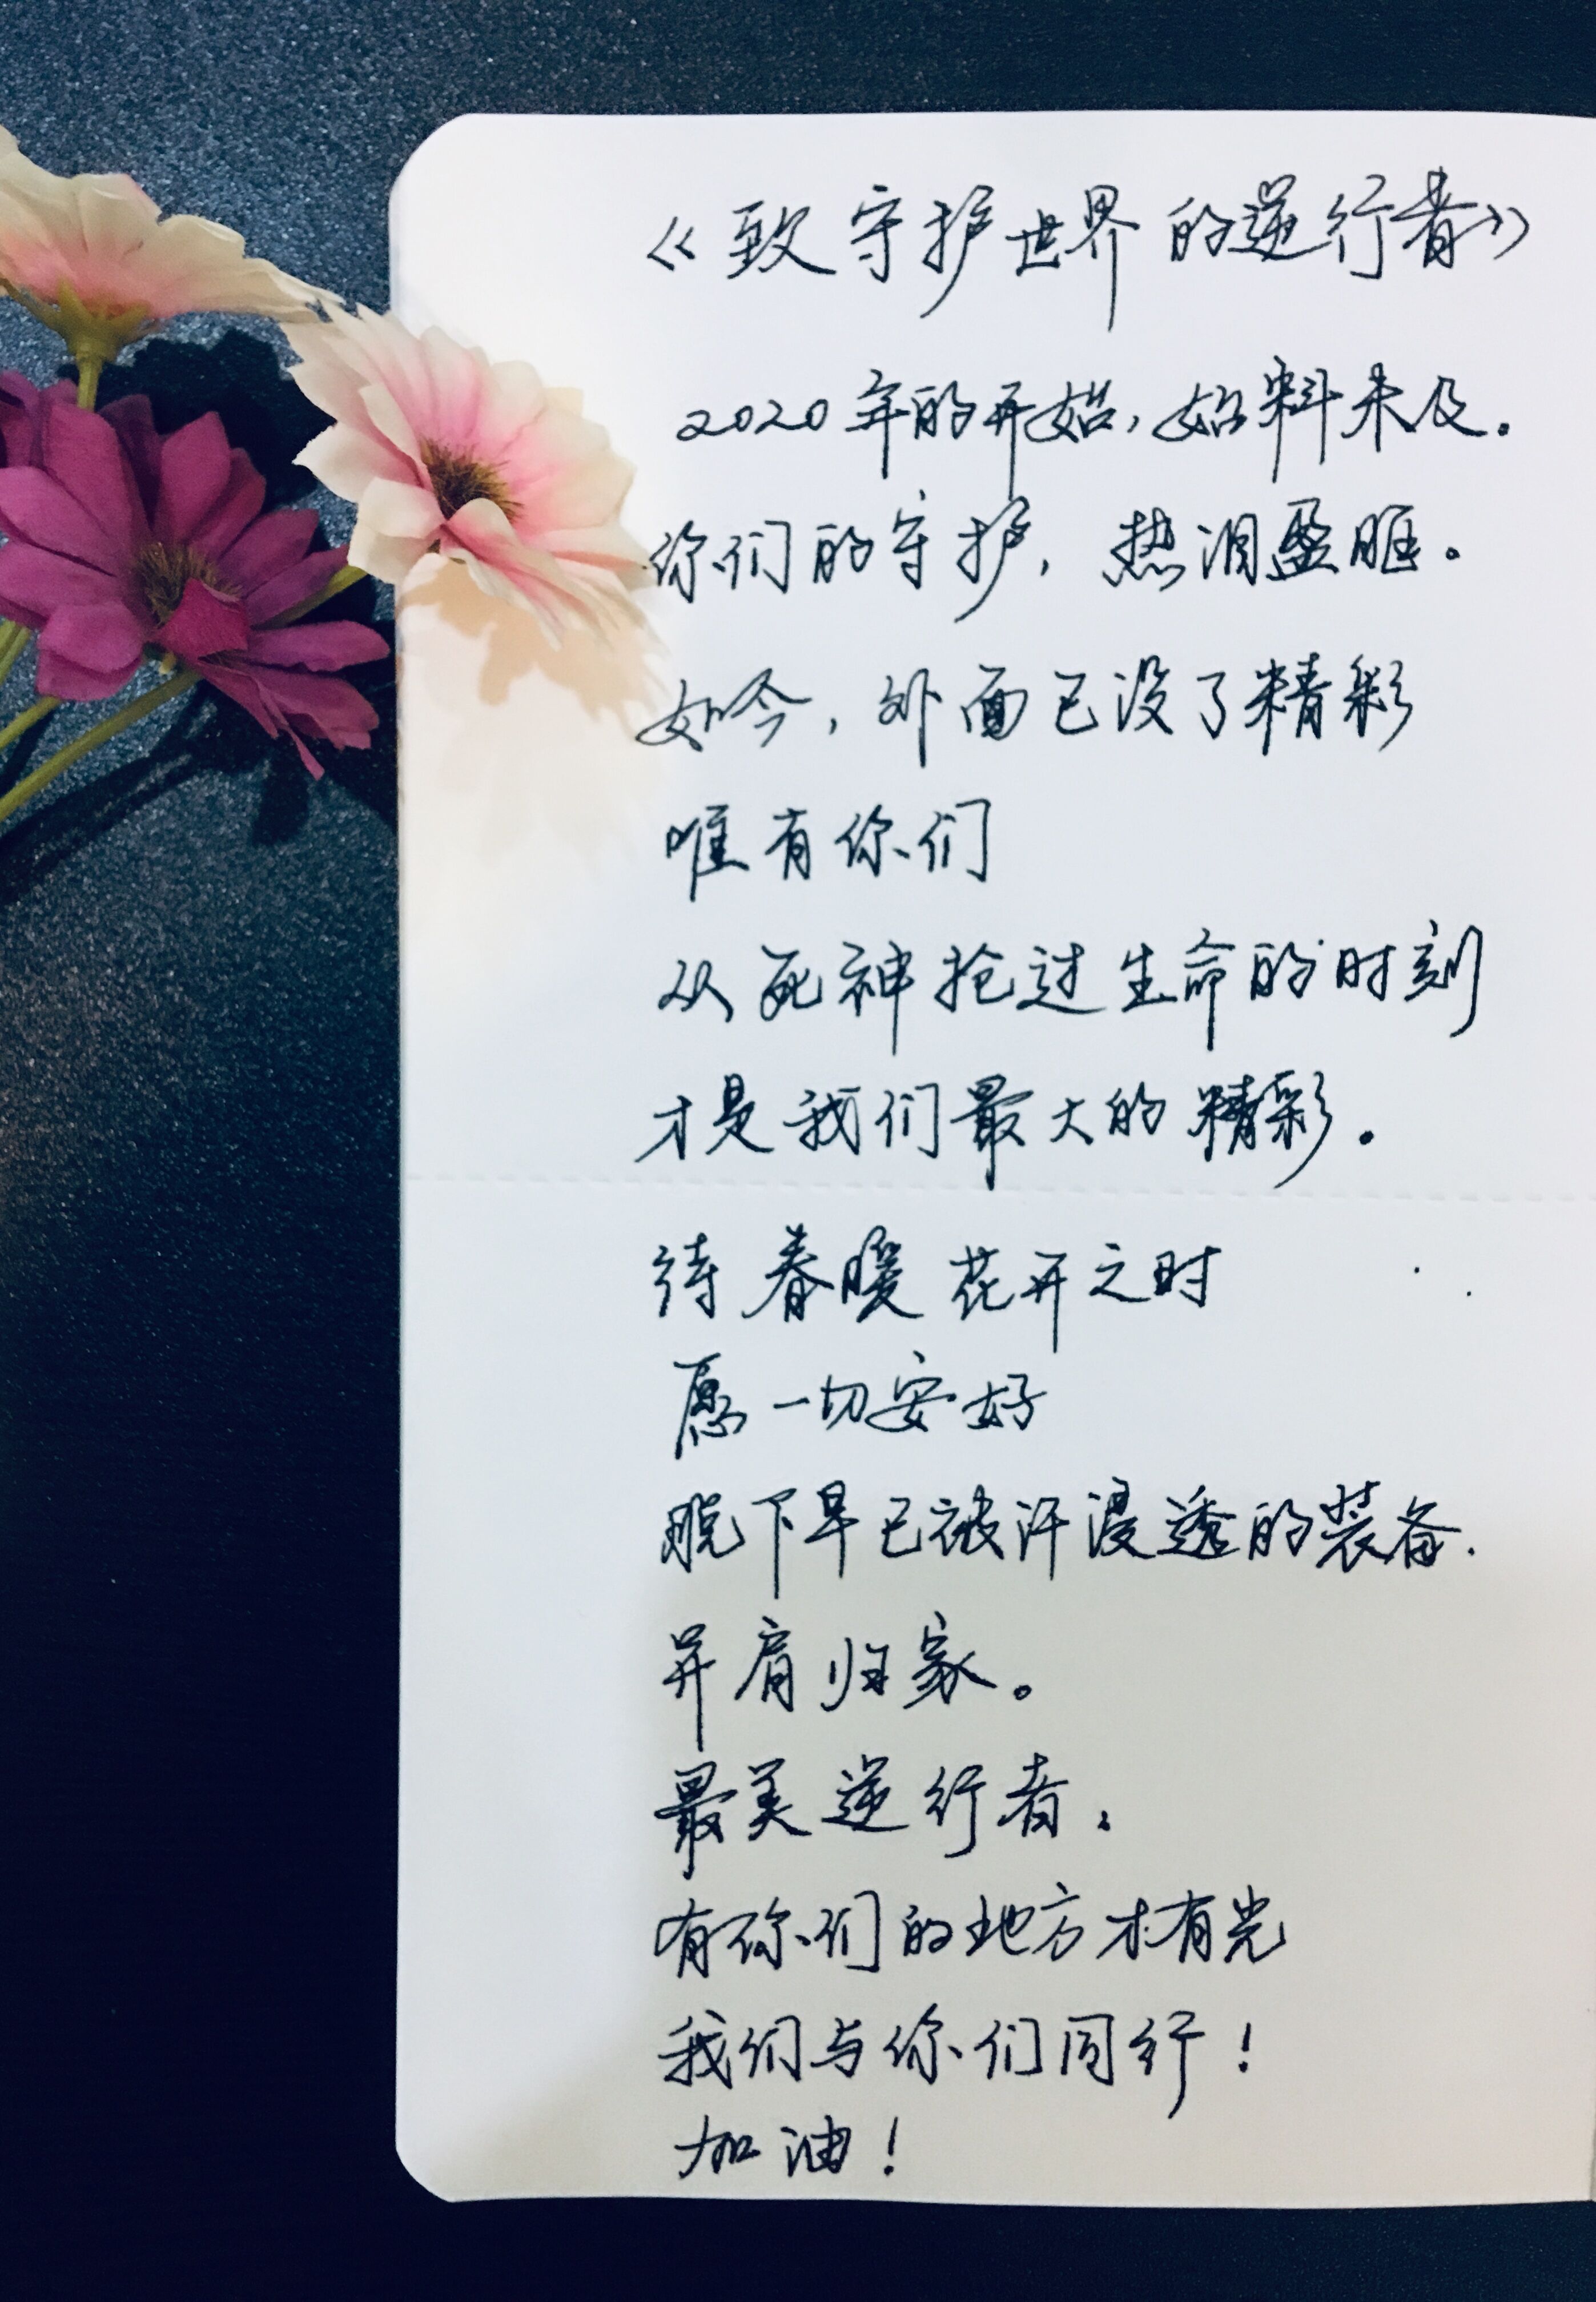 《致守护世界的逆行者》
2020年的开始,始料未及。
你们的守护,热泪盈眶。
如今,外面已没了精彩
唯有你们
从死神抢过生命的时刻
才是我们最大的精彩。
待春暖花开之时
愿一切安好
脱下早已被汗浸透的装备.
并肩归家。
最美逆行者,
有你们的地方才有光
我们与你们同行!
加油!